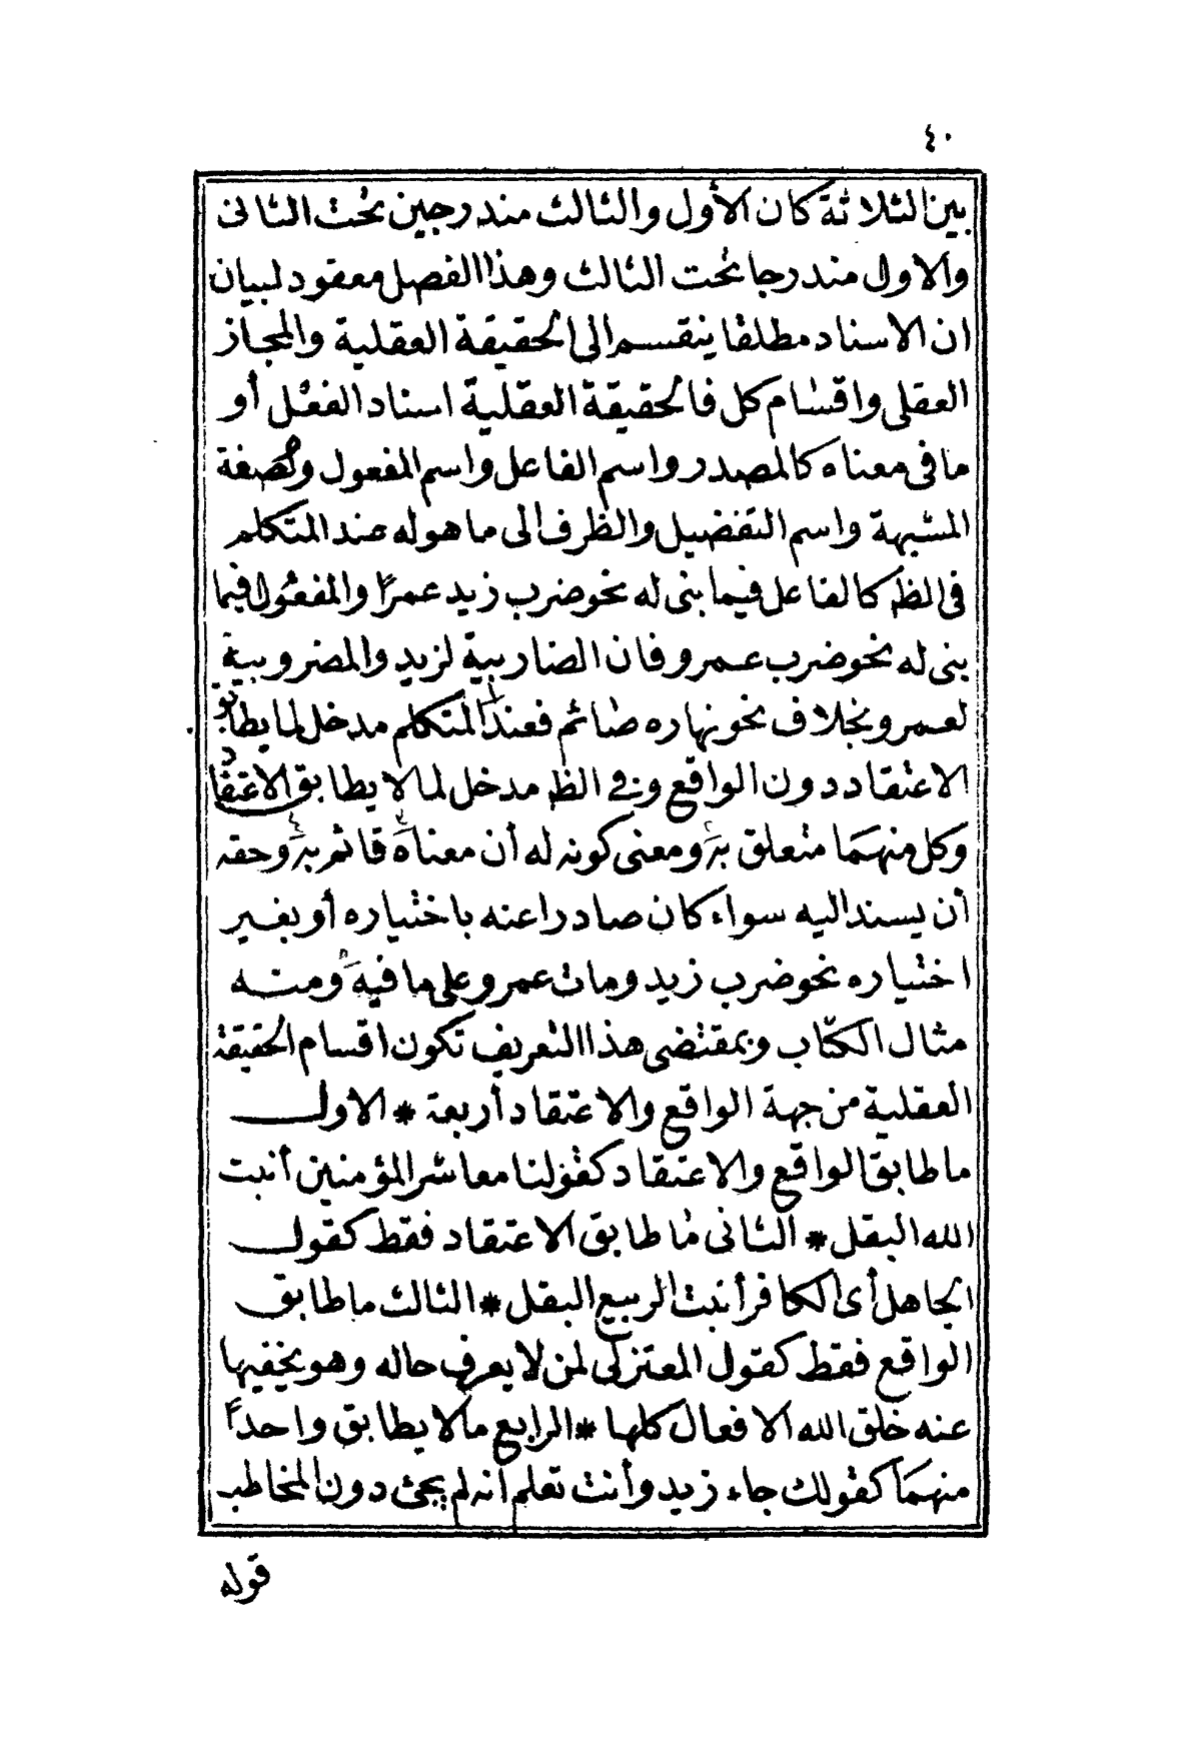 ٤٠
بين الثلاثة كان الأول والثالث مندرجين تحت الثانى
والاول مندرجا تحت الثالث وهذا الفصل معقود لبيان
ان الاسناد مطلقا ينقسم الى الحقيقة العقلية والمجاز
العقلى واقسام كل فالحقيقة العقلية اسناد الفعل أو
ما فى معناه كالمصدر واسم الفاعل واسم المفعول والصفة
المشبهة واسم التفضيل والظرف الى ما هو له عند المتكلم
فى الظ كالفاعل فيما بنى له نحو ضرب زيد عمرًا والمفعول فيما
بنى له نحو ضرب عمرو فان الضاربية لزيد والمضروبية
لعمرو بخلاف نحو نهاره صائم فعند المتكلم مدخل لما يطابق
الاعتقاد دون الواقع وفى الظ مدخل لما لا يطابق الاعتقاد
وكل منهما متعلق به ومعنى كونه له أن معناه قائم به وحقه
أن يسند اليه سواء كان صادرا عنه باختياره أو بغير
اختياره نحو ضرب زيد ومات عمرو على ما فيه ومنه
مثال الكتاب وبمقتضى هذا التعريف تكون اقسام الحقيقة
العقلية من جهة الواقع والاعتقاد أربعة * الاول
ما طابق الواقع والاعتقاد كقولنا معاشر المؤمنين أنبت
الله البقل * الثانى ما طابق الاعتقاد فقط كقول
الجاهل أى الكافر أنبت الربيع البقل * الثالث ما طابق
الواقع فقط كقول المعتزلى لمن لا يعرف حاله وهو يخفيها
عنه خلق الله الافعال كلها * الرابع ما لا يطابق واحدًا
منهما كقولك جاء زيد وأنت تعلم أنه لم يجئ دون المخاطب
قوله